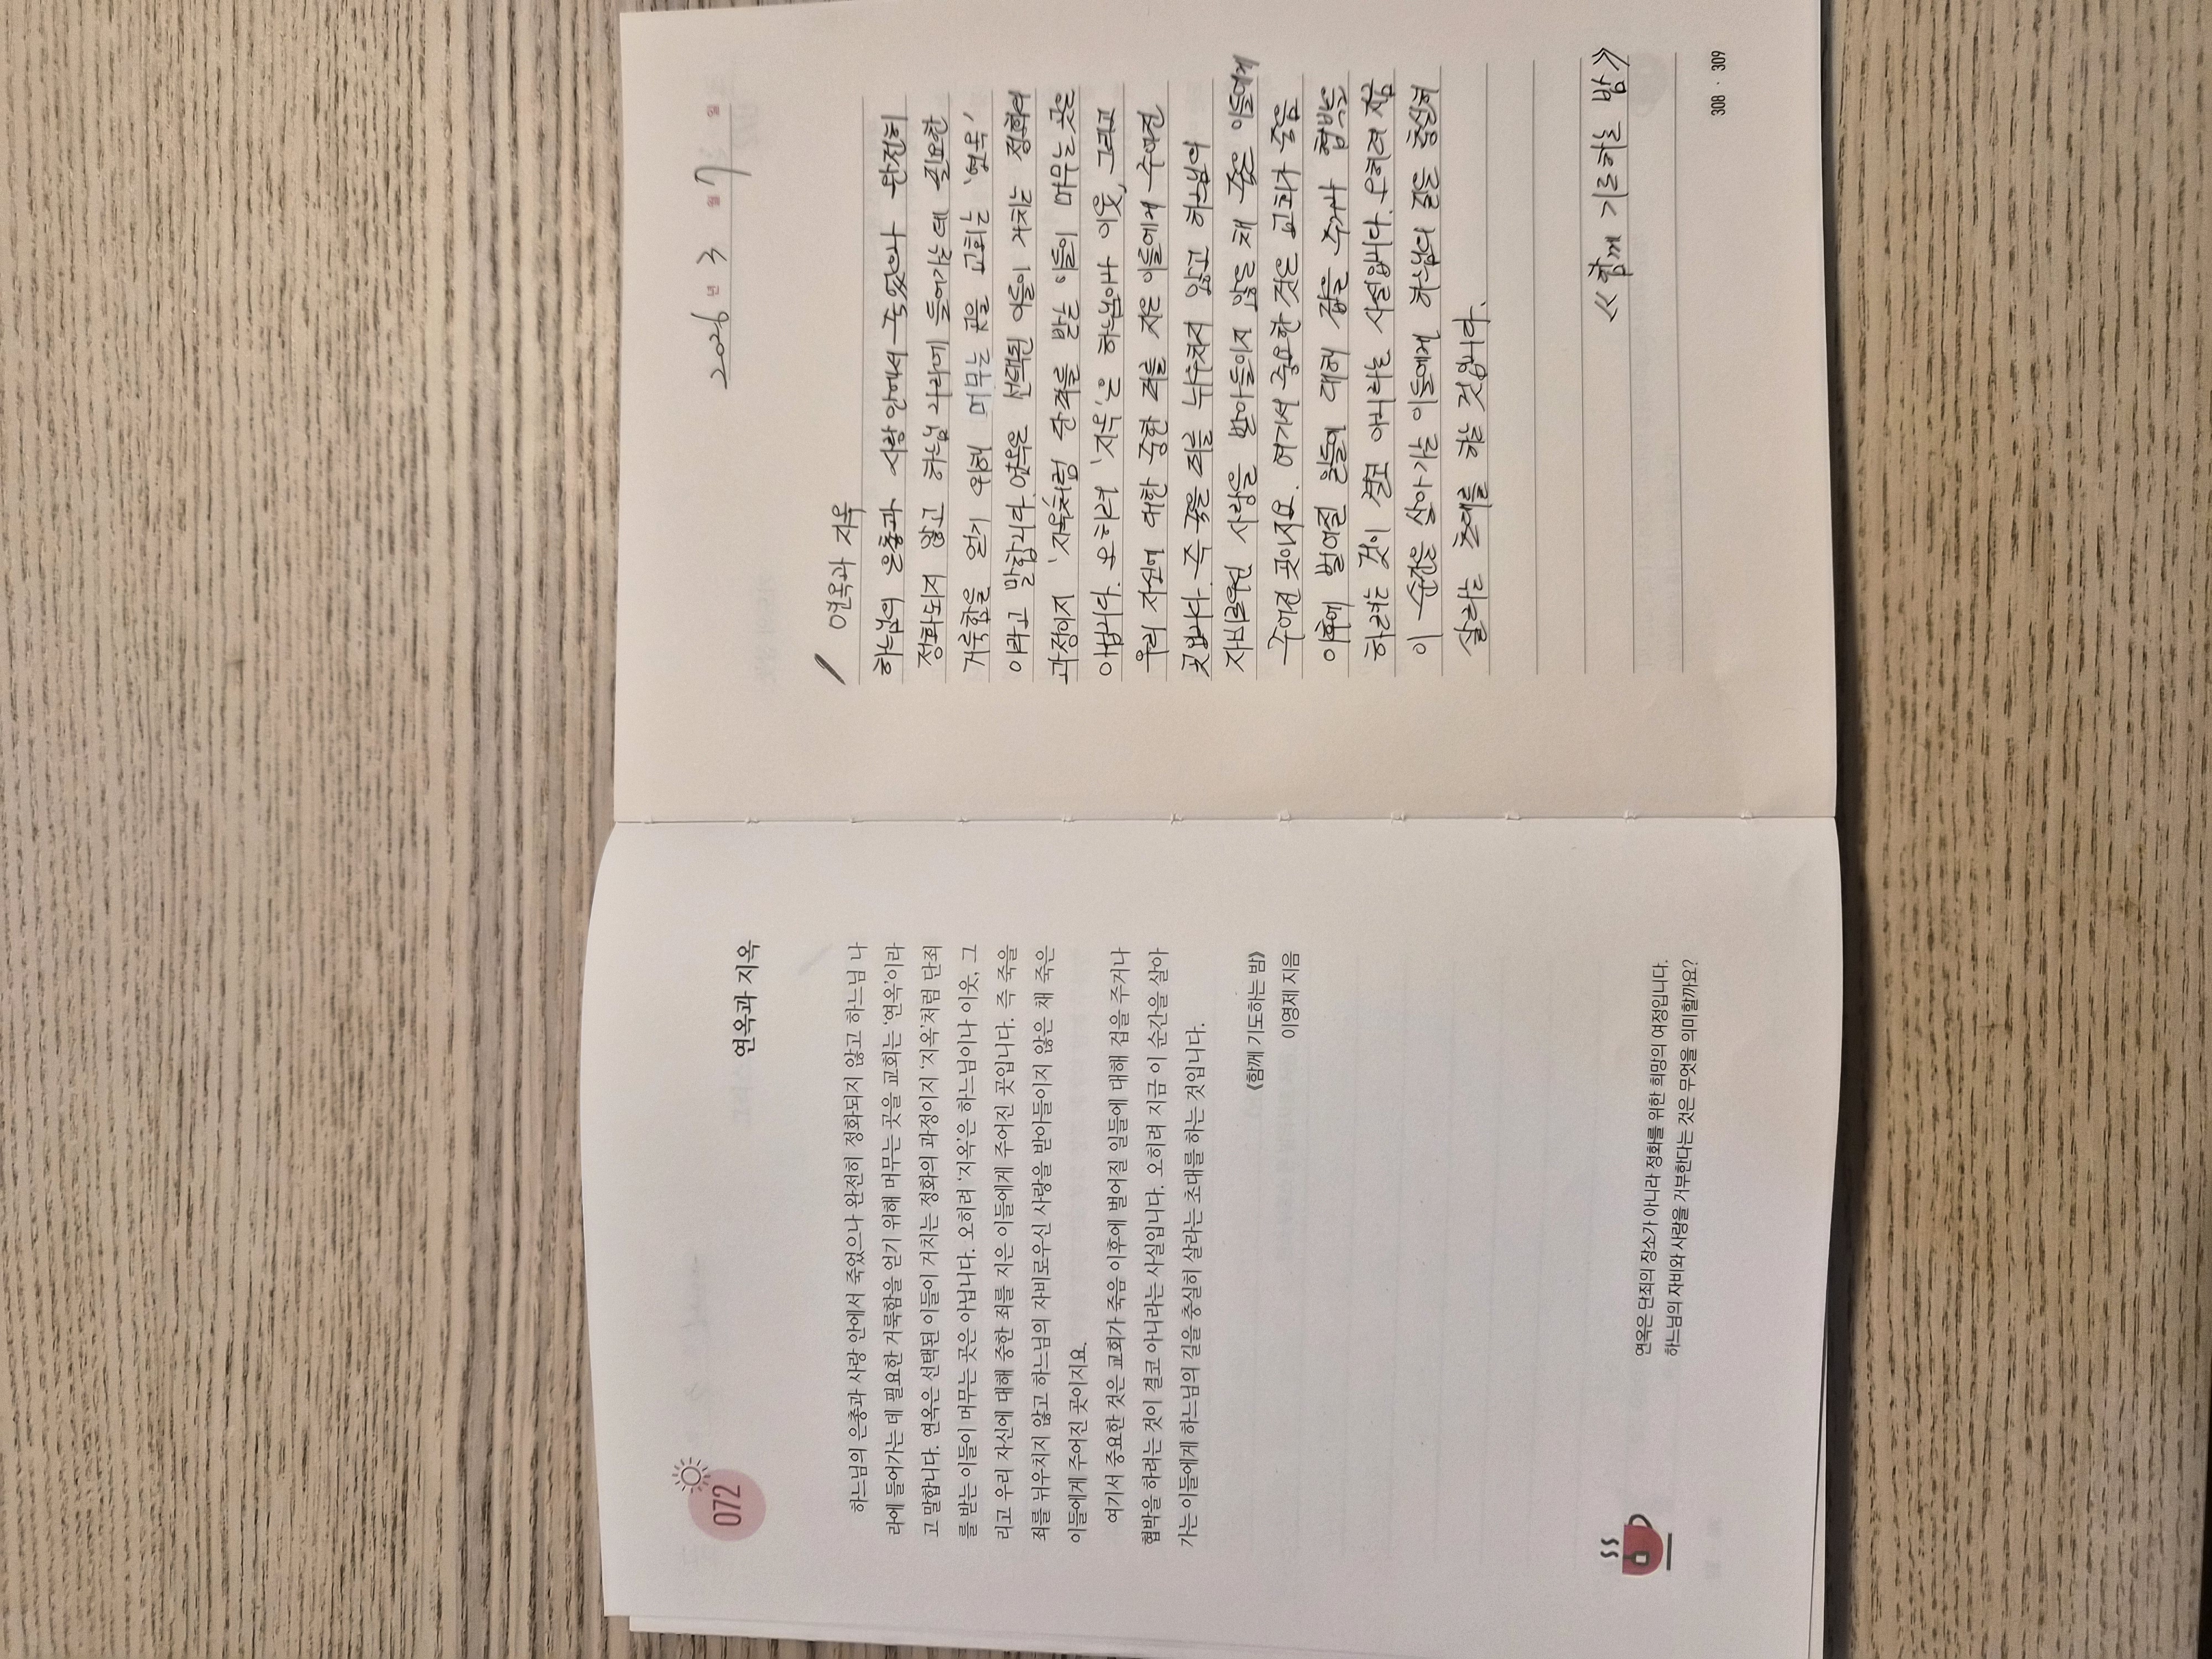 072
연옥과 지옥
하느님의 은총과 사랑 안에서 죽었으나 완전히 정화되지 않고 하느님 나
라에 들어가는 데 필요한 거룩함을 얻기 위해 머무는 곳을 교회는 ‘연옥’이라
고 말합니다. 연옥은 선택된 이들이 거치는 정화의 과정이지 ‘지옥’처럼 단죄
를 받는 이들이 머무는 곳은 아닙니다. 오히려 ‘지옥’은 하느님이나 이웃, 그
리고 우리 자신에 대해 중한 죄를 지은 이들에게 주어진 곳입니다. 즉 죽을
죄를 뉘우치지 않고 하느님의 자비로우신 사랑을 받아들이지 않은 채 죽은
이들에게 주어진 곳이지요.
여기서 중요한 것은 교회가 죽음 이후에 벌어질 일들에 대해 겁을 주거나
협박을 하려는 것이 결코 아니라는 사실입니다. 오히려 지금 이 순간을 살아
가는 이들에게 하느님의 길을 충실히 살라는 초대를 하는 것입니다.
《함께 기도하는 밤》
이영제 지음
연옥은 단죄의 장소가 아니라 정화를 위한 희망의 여정입니다.
하느님의 자비와 사랑을 거부한다는 것은 무엇을 의미할까요?
2026 년 3 월 7 일
연옥과 지옥
하느님의 은총과 사랑 안에서 죽었으나 완전히
정화되지 않고 하느님 나라에 들어가는데 필요한
거룩함을 얻기 위해 머무는 곳을 교회는 ‘연옥’
이라고 말합니다. 연옥은 선택된 이들이 거치는 정화의
과정이지 ‘지옥’처럼 단죄를 받는 이들이 머무는 곳은
아닙니다. 오히려 ‘지옥’은 하느님이나 이웃, 그리고
우리 자신에 대한 중한 죄를 지은 이들에게 주어진
곳입니다. 즉 죽을 죄를 뉘우치지 않고 하느님의
자비로우신 사랑을 받아들이지 않은 채 죽은 이들에게
주어진 곳이지요. 여기서 중요한 것은 교회가 죽음
이후에 벌어질 일들에 대해 겁을 주거나 협박을
하려는 것이 결코 아니라는 사실입니다. 오히려 지금
이 순간을 살아가는 이들에게 하느님의 길을 충실히
살라는 초대를 하는 것입니다.
《함께 기도하는 밤》
308 · 309